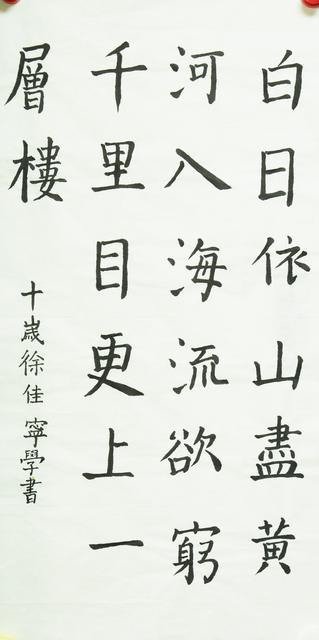 白日依山盡黄
河入海流欲窮
千里目更上一
層樓
十歲徐佳寧學書